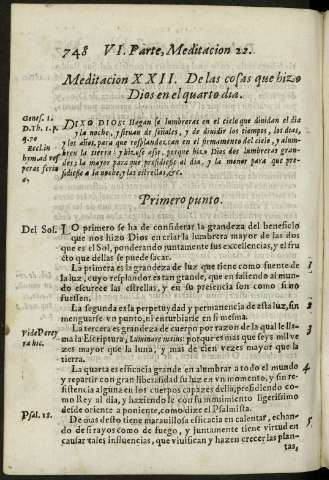 748 VI. Parte, Meditacion 22.
Meditacion XXII. De las cosas que hizo
Dios en el quarto dia.
Genes. 1.
D. Th. 1. p.
q. 70
Eccl. in
hym. ad ve
peras feria
DIXO DIOS: Hagan se lumbreras en el cielo que diuidan el dia
y la noche, y siruan de señales, y de diuidir los tiempos, los dias,
y los años, para que resplandezcan en el firmamento del cielo, y alum-
bren la tierra: y hizose assi, porque hizo Dios dos lumbreras gran-
des: la mayor para que presidiesse al dia, y la menor para que pre-
sidiesse a la noche, y las estrellas, &c.
Primero punto.
Del Sol.
LO primero se ha de considerar la grandeza del beneficio
que nos hizo Dios en criar la lumbrera mayor de las dos
que es el Sol, ponderando juntamente sus excellencias, y el fru
cto que dellas se puede sacar.
1
La primera es la grandeza de luz que tiene como fuente de
la luz, cuyo resplandor es tan grande, que en saliendo al mun-
do escurece las estrellas, y en su presencia son como si no
fuessen.
2
La segunda es la perpetuydad y permanencia de esta luz, sin
menguarse vn punto, ni enturbiarse en si mesma.
3
Vide Perey
ra hic.
La tercera es grandeza de cuerpo por razon de la qual le lla-
ma la Escriptura, Luminare maius: porque es mas que seys mil ve
zes mayor que la luna, y mas de cien vezes mayor que la
tierra.
4
La quarta es efficacia grande en alumbrar a todo el mundo
y repartir con gran liberalidad su luz en vn momento, y sin re-
sistencia alguna en los cuerpos capazes della, presidiendo co-
mo Rey al dia, y haziendole con su mouimiento ligerissimo
desde oriente a poniente, como dize el Psalmista.
Psal. 18.
5
De mas desto tiene marauillosa efficacia en calentar, echan-
do de si rayos como de fuego, y juntamente tiene virtud en
causar tales influencias, que viuifican y hazen crecer las plan-
tas,